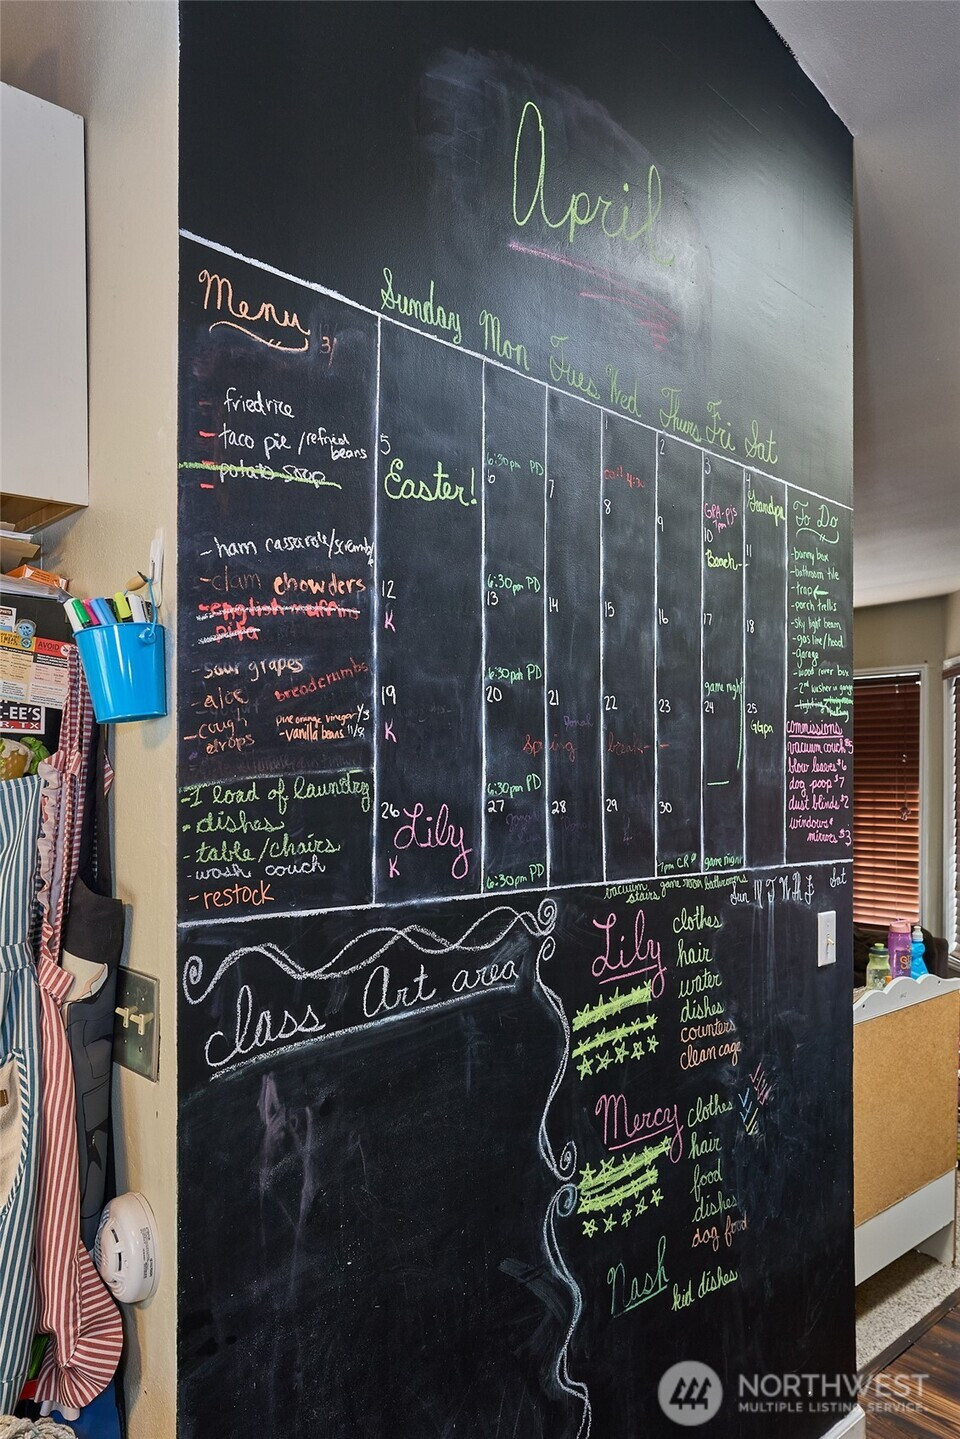 April
Sunday Mon Tues Wed Thurs Fri Sat
Menu
3/
- friedrice
- taco pie / refried beans
- potato soup
- ham casserole/
- clam chowders
- english muffins
pita
- sour grapes
- aloe
breadcrumbs
- cough drops
pure orange vinegar
- vanilla beans 11/8
- 1 load of laundry
- dishes
- table/chairs
- wash couch
- restock
1
2
3
4
Grandpa
5
Easter!
6:30pm PD
6
7
call 4:30
8
9
GPA-pjs
7pm
10
Beach-
11
12
K
6:30pm PD
13
14
15
16
17
18
19
K
6:30pm PD
20
21
22
23
game night
24
25
GGpa
Spring break
26
Lily
K
6:30pm PD
27
28
29
30
6:30pm PD
7pm C.R.
game night
To Do
- bunny box
- bathroom tile
- trap
- porch trellis
- sky light beam
- gas line/hood
- garage
- wood river box
- 2nd washer in garage
- lighting
commissions
vacuum couch $5
blow leaves $6
dog poop $7
dust blinds $2
windows &
mirrors $3
vacuum stairs game room bathrooms
Sun M T W Th F Sat
Class Art area
Lily
clothes
hair
water
dishes
counters
clean cage
Mercy
clothes
hair
food
dishes
dog food
Nash
kid dishes
AVOID
-EE'S
R, TX
NORTHWEST
MULTIPLE LISTING SERVICE